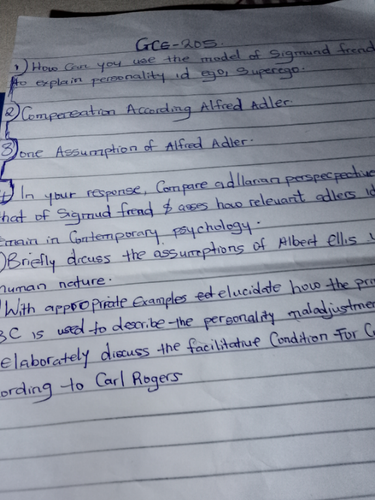 GCE-205.
1) How can you use the model of Sigmund frend
to explain personality id ego, Superego.
2) Compensation According Alfred Adler
3) one Assumption of Alfred Adler.
In your response, Compare adllarian perspecpective
that of Sigmud frend & asses how relevant adlers id
emain in Contemporary psychology.
) Briefly dicuss the assumptions of Albert ellis
human nature.
) With appropriate Examples elucidate how the prin
BC is used to describe the personality maladjustme
elaborately discuss the facilitative Condition For Co
ording to Carl Rogers